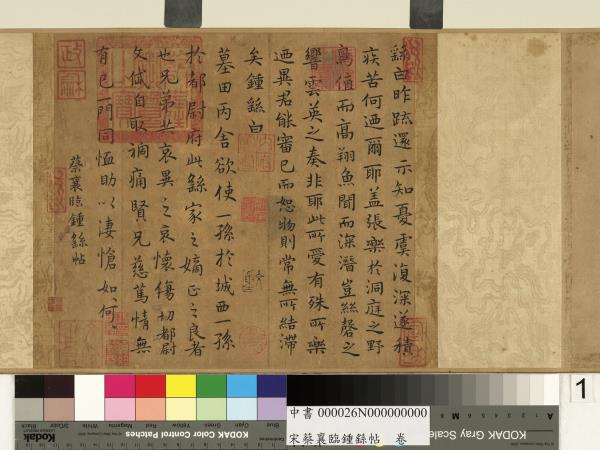 繇白昨疏還示知憂虞復深遂積
疾苦何迺爾耶蓋張樂於洞庭之野
鳥值而高翔魚聞而深潛豈絲磬之
響雲英之奏非耶此所愛有殊所樂
迺異君能審己而恕物則常無所結滯
矣鍾繇白
墓田丙舍欲使一孫於城西一孫
於都尉府此繇家之嫡正之良者
也兄弟共哀異之哀懷傷切都尉
文岱自取禍痛賢兄慈篤情無
有已一門同恤助以悽愴如何、、
蔡襄臨鍾繇帖
政和
1
Blue
Cyan
Green
Yellow
Red
Magenta
White
3/Color
Black
Kodak
KODAK Color Control Patches
A
M
KODAK Gray Scale
中書 000026N000000000
宋蔡襄臨鍾繇帖 卷